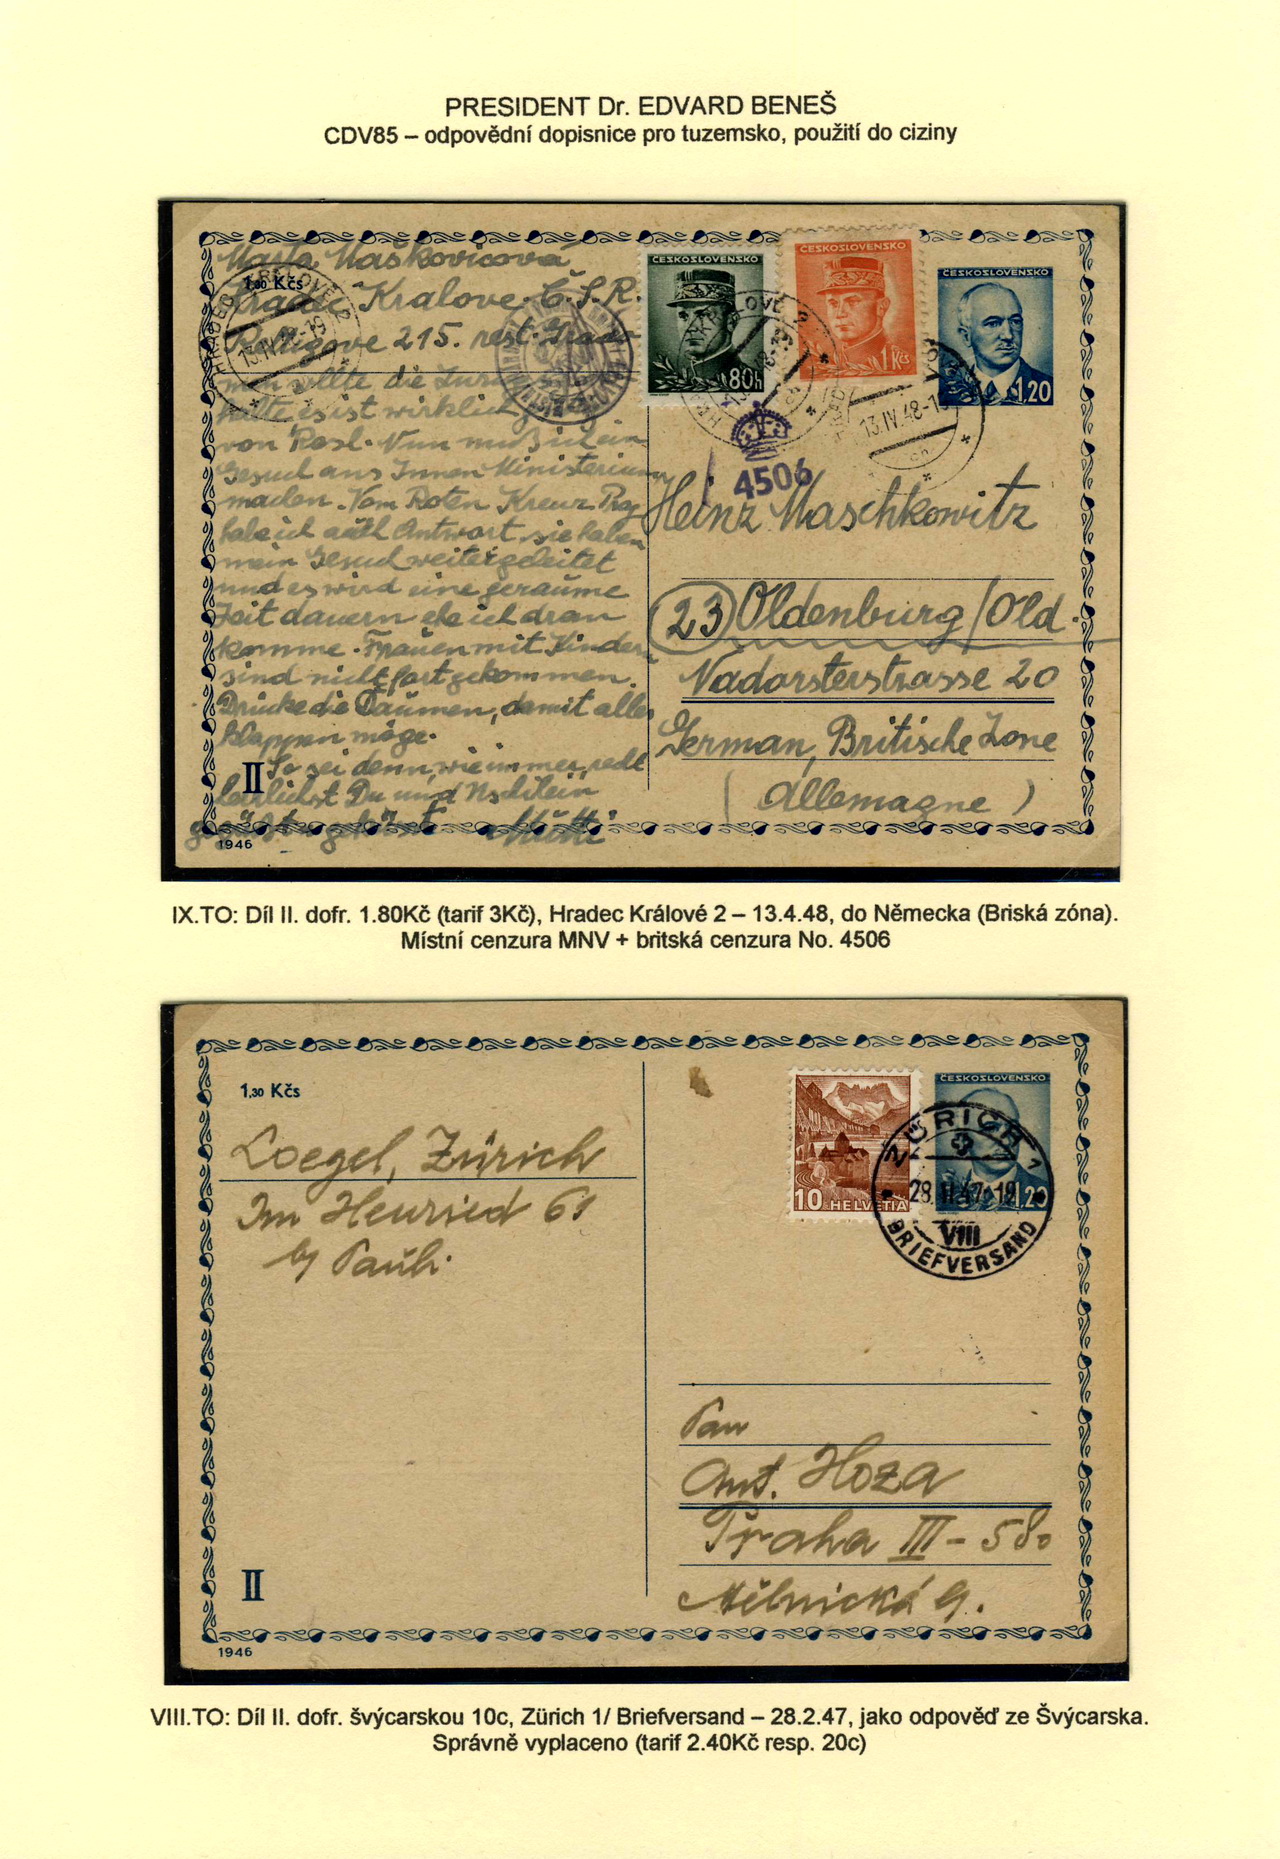 PRESIDENT Dr. EDVARD BENEŠ
CDV85 – odpovědní dopisnice pro tuzemsko, použití do ciziny
Marta Maškovicová
Králové Č.S.R.
215. rest.
1,30 Kčs
HRADEC KRÁLOVÉ 2
13.IV.48
ČESKOSLOVENSKO
80h
ČESKOSLOVENSKO
1 Kčs
1,20
13.IV.48-1
4506
von Rosl. Nun muß ich ein
Gesuch ans Innen Ministerium
machen. Vom Roten Kreuz Prg
habe ich auch Antwort, sie haben
mein Gesuch weitergeleitet
und es wird eine geraume
Zeit dauern ehe ich dran
komme. Frauen mit Kinder
sind nicht fortgekommen.
Drücke die Daumen, damit alles
klappen möge.
So sei denn wie immer, recht
herzlichst Du und
Mutti
Heinz Maschkowitz
23 Oldenburg/Old.
Nadorsterstrasse 20
German, Britische Zone
(Allemagne)
II
1946
IX.TO: Díl II. dofr. 1.80Kč (tarif 3Kč), Hradec Králové 2 – 13.4.48, do Německa (Briská zóna).
Místní cenzura MNV + britská cenzura No. 4506
1,30 Kčs
Loegel, Zürich
Im Heuried 61
by Pauli.
10 HELVETIA
ČESKOSLOVENSKO
1,20
ZÜRICH 1
28.II.47-19
VIII
BRIEFVERSAND
Pan
Ant. Hoza
Praha III – 580
Mělnická 9.
II
1946
VIII.TO: Díl II. dofr. švýcarskou 10c, Zürich 1/ Briefversand – 28.2.47, jako odpověď ze Švýcarska.
Správně vyplaceno (tarif 2.40Kč resp. 20c)